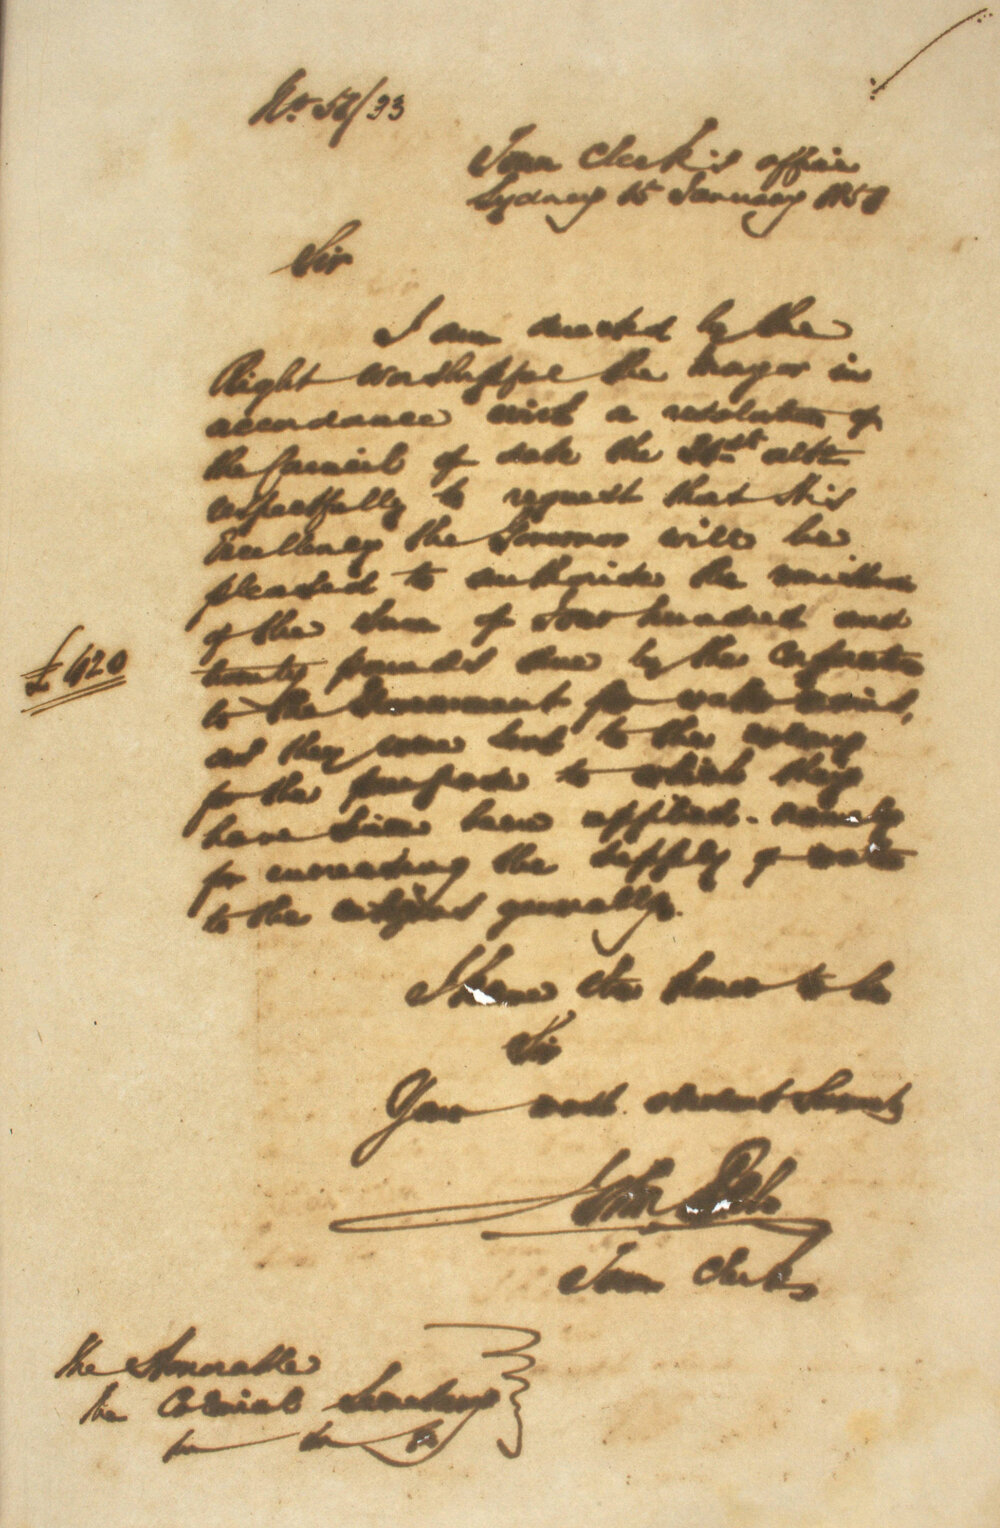 No. 58/33
Town Clerk's office
Sydney 15 January 1858
Sir
I am directed by the
Right Worshipful the Mayor in
accordance with a resolution of
the Council of date the 21st ulto
respectfully to request that His
Excellency the Governor will be
pleased to authorise the remission
of the sum of Four hundred and
twenty pounds due by the Corporation
£420
to the Government for water
as they were lent to the
for the purpose to which they
have since been applied - namely
for increasing the supply of water
to the citizens generally.
I have the honor to be
Sir
Your most obedient Servant
John
Town Clerk
The Honorable
the Colonial Secretary